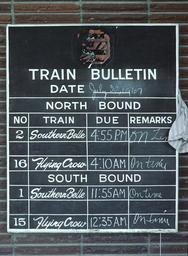 TRAIN BULLETIN
DATE July
NORTH BOUND
NO TRAIN DUE REMARKS
2 Southern Belle 4:55 PM On Time
16 Flying Crow 4:10 AM On time
SOUTH BOUND
1 Southern Belle 11:55 AM On time
15 Flying Crow 12:35 AM On time